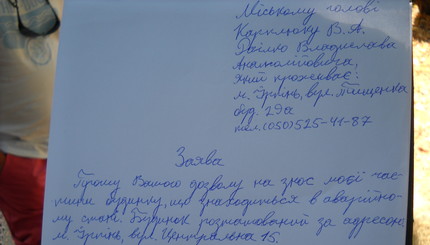 Міському голові
Карплюку В. А.
Владислава
Анатолійовича,
який проживає:
м. Ірпінь, вул. Тищенка
буд. 29а
тел. (050) 525-41-87
Заява
Прошу Вашого дозволу на знос моєї час-
тини будинку, що знаходиться в аварійно-
му стані. Будинок розташований за адресою
м. Ірпінь, вул. Центральна 15.